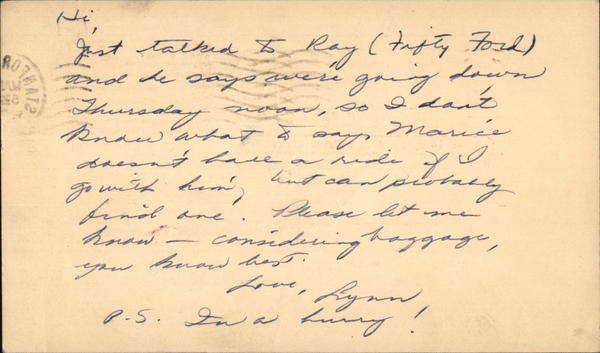 Hi,
Just talked to Ray (Fifty Ford)
and he says we're going down
Thursday noon, so I don't
know what to say. Marice
doesn't have a ride if I
go with him, but can probably
find one. Please let me
know — considering baggage,
you know best.
Love, Lynn
P.S. In a hurry!
STANFOR